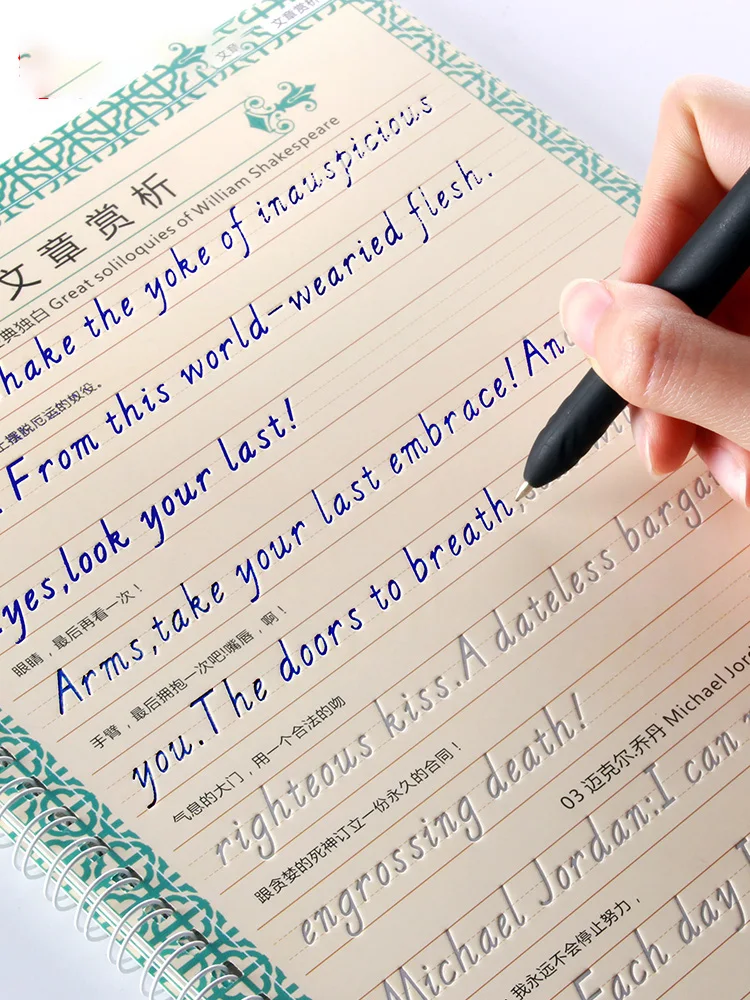 文章赏析
文章
文章赏析
典独白 Great soliloquies of William Shakespeare
hake the yoke of inauspicious
上摆脱厄运的奴役。
.From this world-wearied flesh.
yes,look your last!
眼睛，最后再看一次！
Arms,take your last embrace! An
手臂，最后拥抱一次吧!嘴唇，啊！
you.The doors to breath,
气息的大门，用一个合法的吻
righteous kiss.A dateless barga
跟贪婪的死神订立一份永久的合同！
engrossing death!
03 迈克尔.乔丹 Michael Jord
Michael Jordan:I can
我永远不会停止努力，
Each day,I